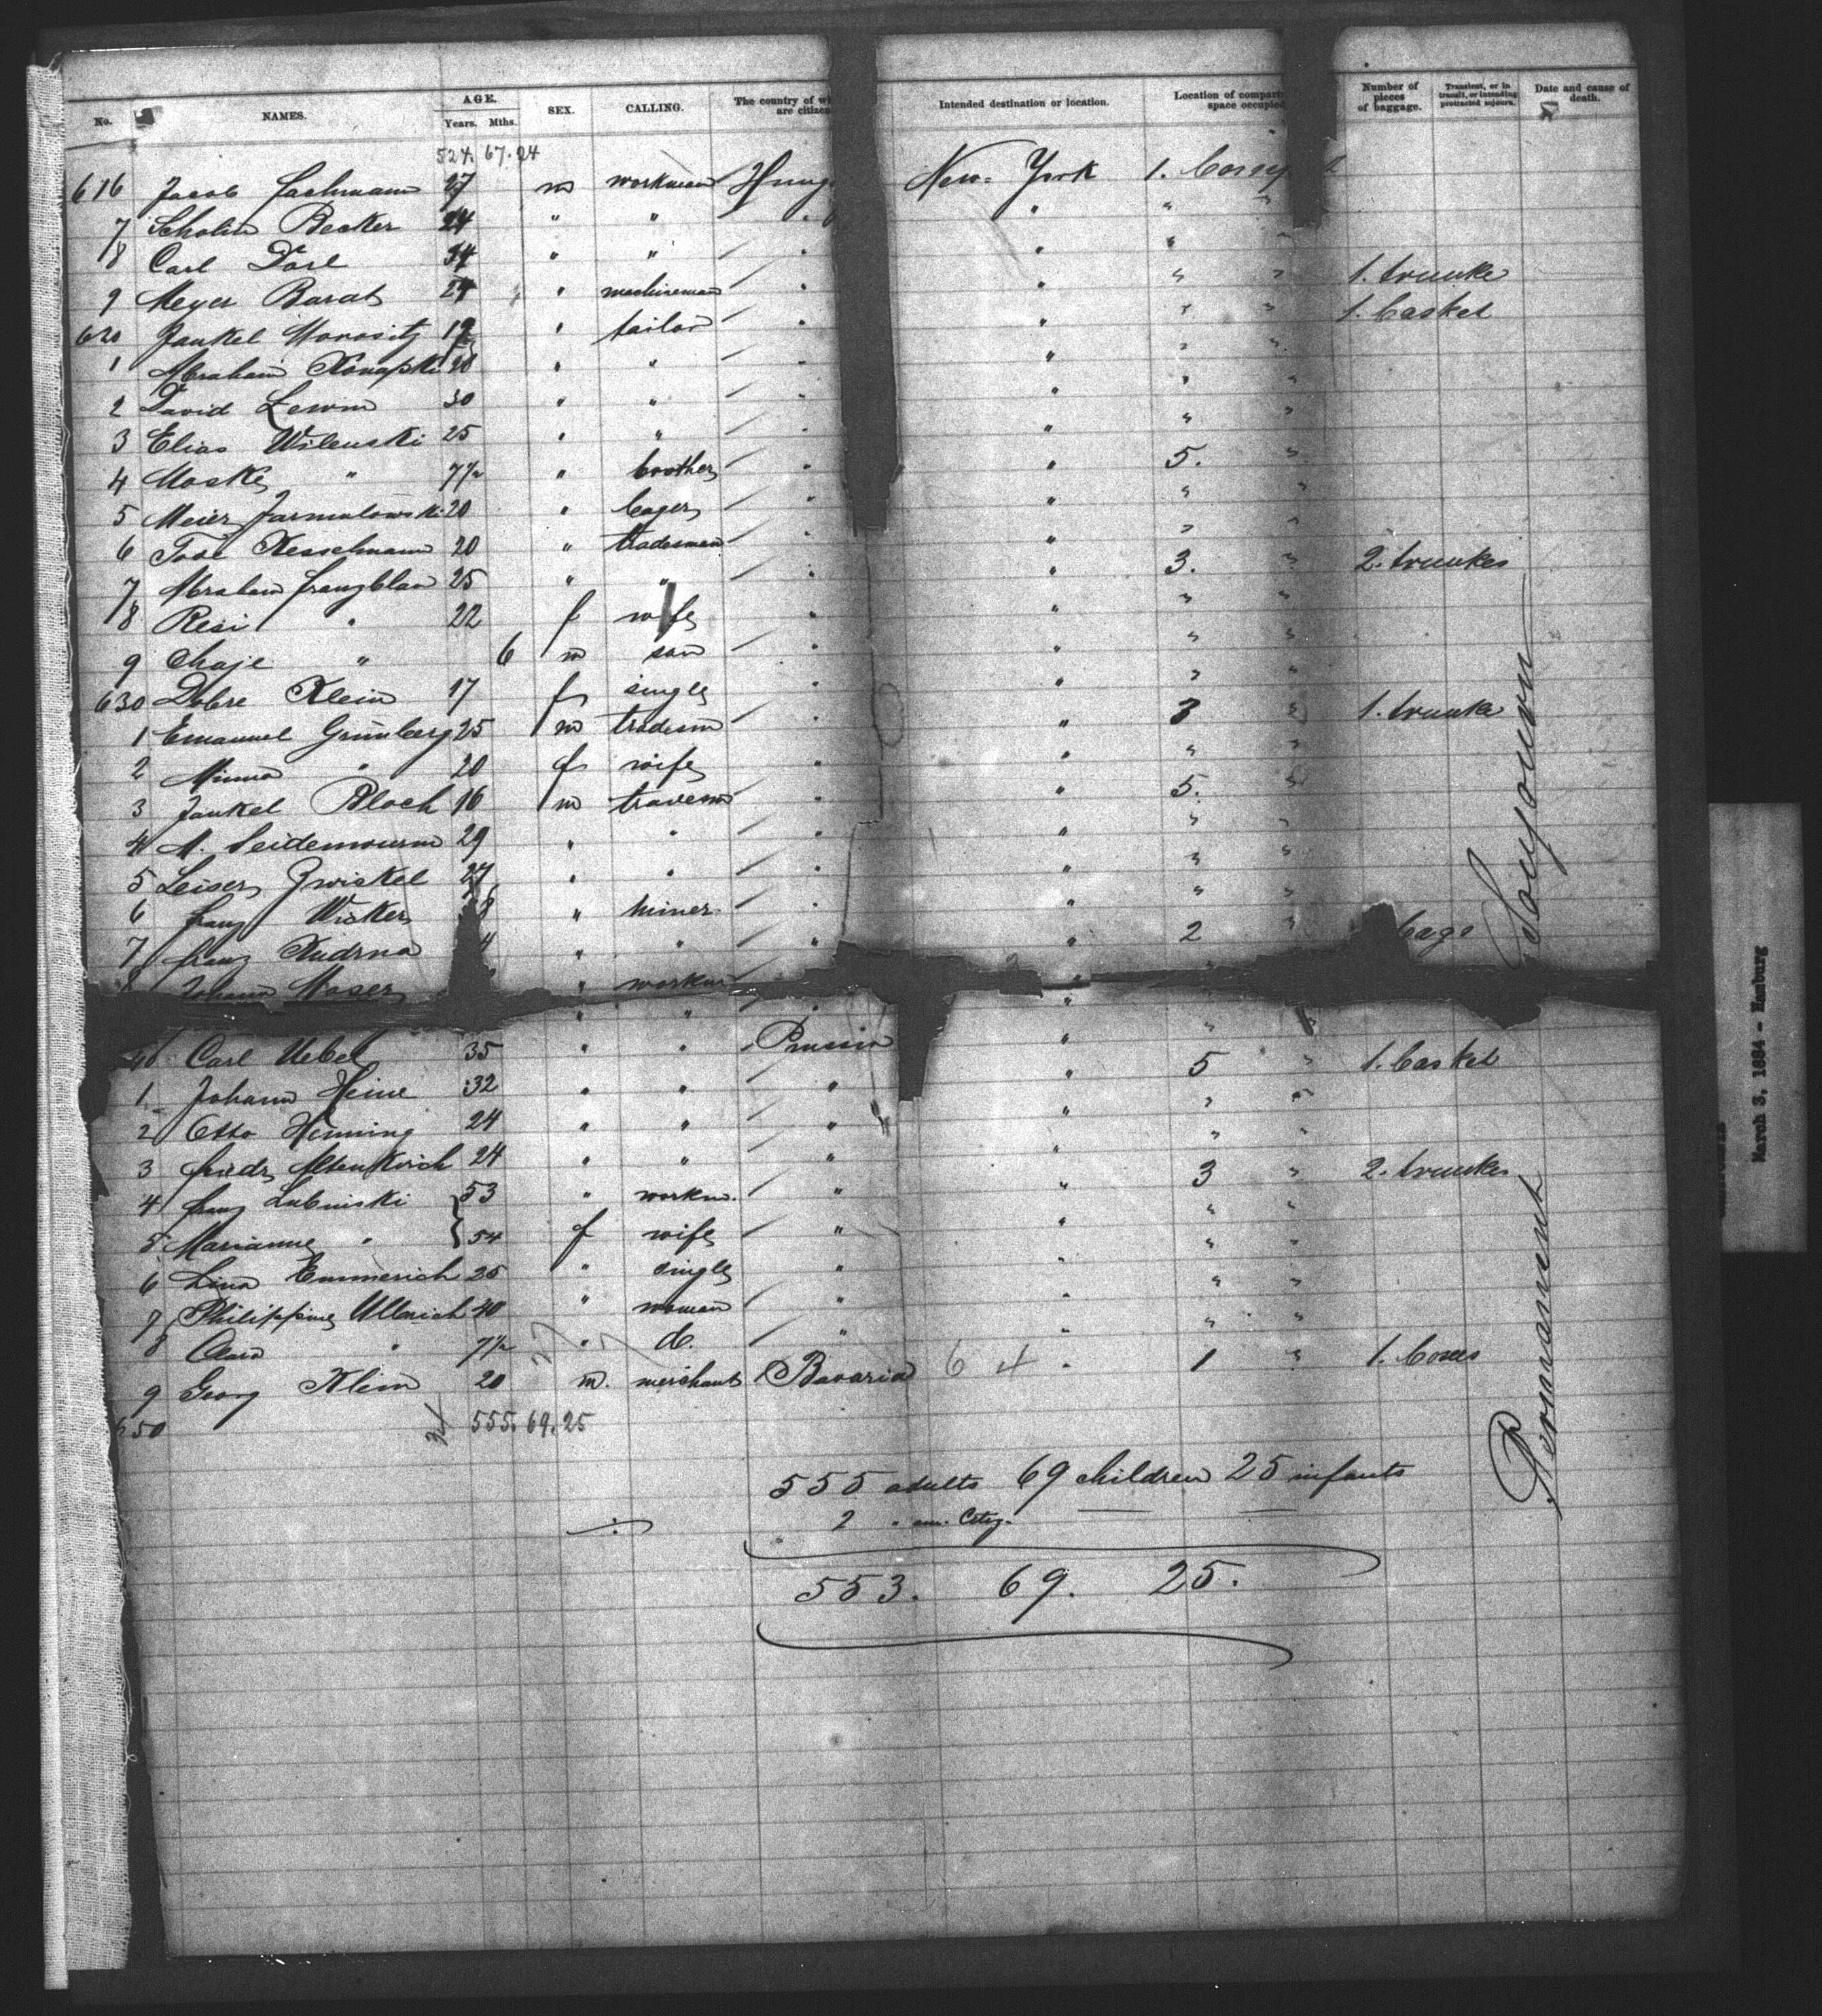 No. NAMES. AGE. Years. Mths. SEX. CALLING. The country of wh are citizen Intended destination or location. Location of compart space occupied Number of pieces of baggage. Transient, or in transit, or intending protracted sojourn. Date and cause of death.
524. 67. 24
616 Jacob 27 m workman Hung New-York 1.
7 Becker 24 " " " " " "
8 Carl 34 " " " " " "
9 Meyer Barat 24 " machineman " " " " 1. trunke
620 Jankel 19 " tailor " " " " 1. basket
1 Abraham 28 " " " " " "
2 David Lewin 30 " " " " " "
3 Elias Wilenski 25 " " " " " "
4 " 7½ " brother " " 5. "
5 Meier Jarmulowski 20 " " " " "
6 Kesselmann 20 " tradesman " " " "
7 Abraham Franzblau 25 " " " " 3. " 2. trunkes
8 Resi " 22 f wife " " " "
9 Chaje " 6 m son " " " "
630 Dobre Klein 17 f single " " " "
1 Emanuel Grünberg 25 m tradesm " " 3 " 1. trunke
2 Minna " 20 f wife " " " "
3 Jankel Bloch 16 m " " 5. "
4 29 " " " " " "
5 Leiser Zwickel 27 " " " " " "
6 Franz 8 " miner " " " "
7 Franz Kudrna 4 " " " " 2 " bags
8 Johann Moser " workm "
" " " "
40 Carl Uebel 35 " " Prussia " "
1 Johann Heine 32 " " " " 5 " 1. basket
2 Otto Henning 24 " " " " " "
3 Friedr Altenkirch 24 " " " " " "
4 Franz Lubinski 53 " workm. " " 3 " 2. trunkes
5 Marianne " 54 f wife " " " "
6 Lina Emmerich 25 " single " " " "
7 Philippine Ullrich 40 " woman " " " "
8 Clara " 7½ " do. " " " "
9 Georg Klein 20 m. merchant Bavaria 64 " 1 " 1.
650 555. 69. 25
555 adults 69 children 25 infants
2 " am. Citiz.
553. 69. 25.
Permanent
March 3, 1884 - Hamburg